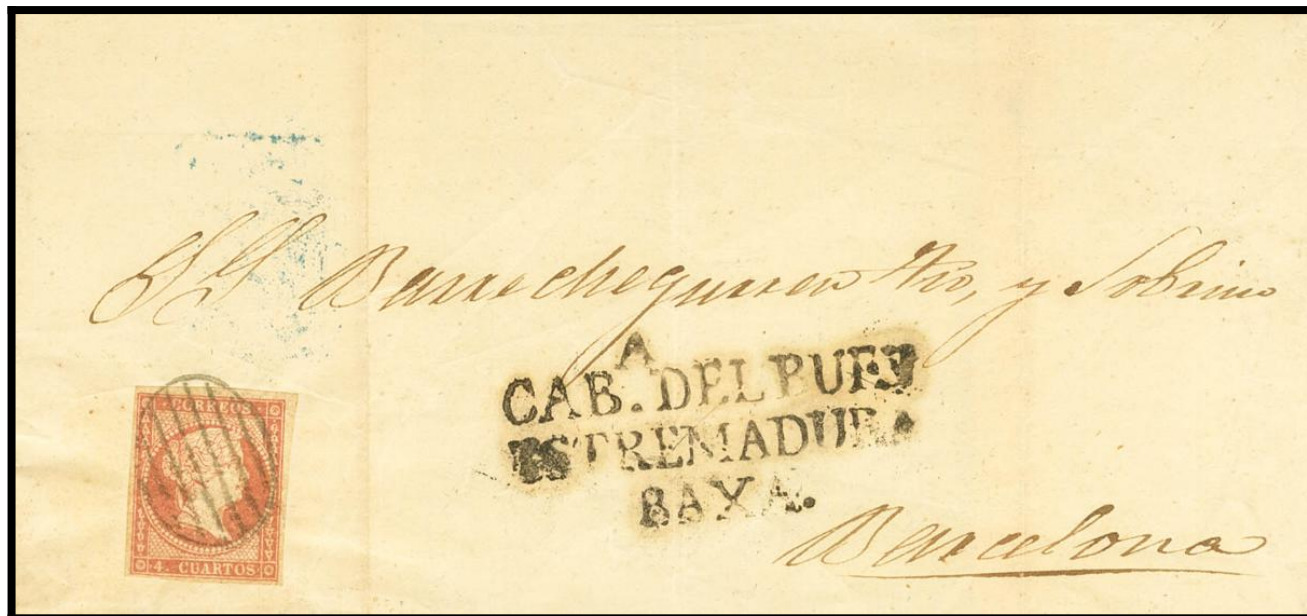 SS Barrechegurren Tio, y Sobrino
A
CAB. DEL BUEY
ESTREMADURA
BAXA.
Barcelona
CORREOS
4. CUARTOS